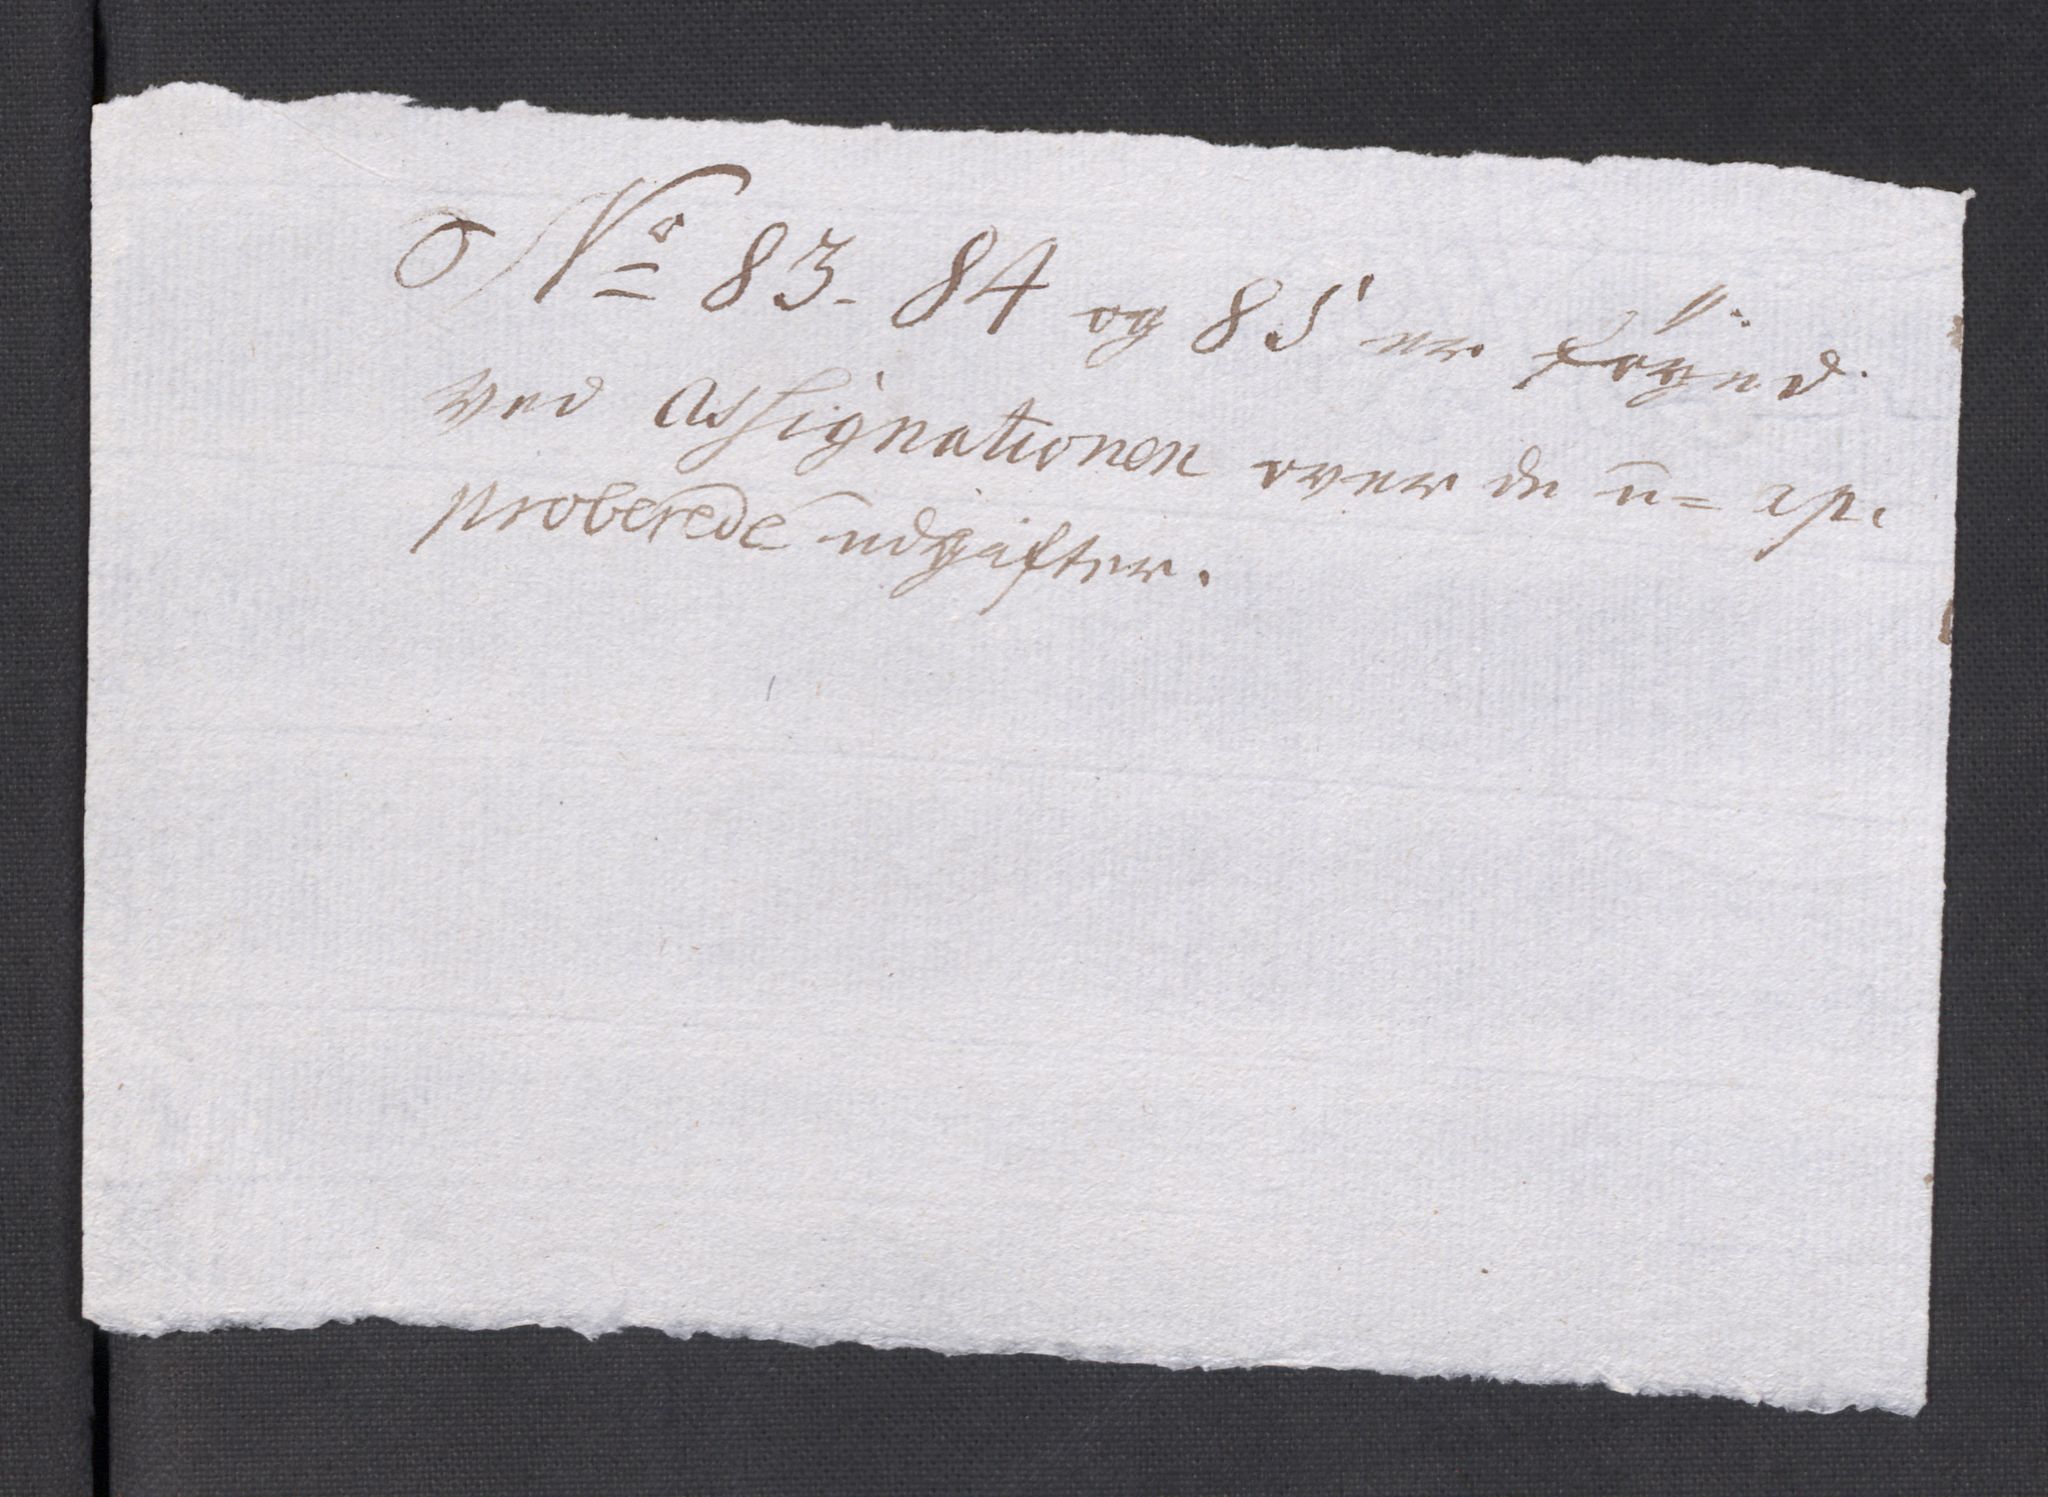 No 83. 84 og 85 er föyed
ved Assignationen over de u=ap-
proberede udgifter.